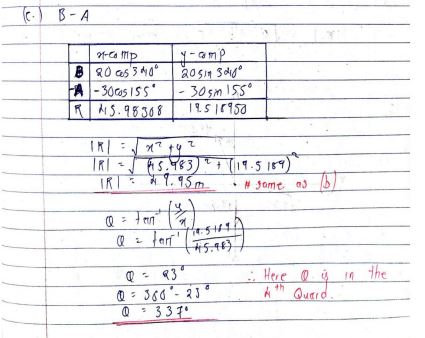 (c.) B - A
x-comp y-comp
B 20 cos 340° 20 sin 340°
-A -30cos155° - 30sin 155°
R 45.98308 19.518950
|R| = √x² + y²
|R| = √(45.983)² + (19.5189)²
|R| = 49.95m # same as (b)
Q = tan⁻¹ (y/x)
Q = tan⁻¹ (19.5189/45.983)
Q = 23° ∴ Here Q is in the
Q = 360° - 23° 4th Quard.
Q = 337°